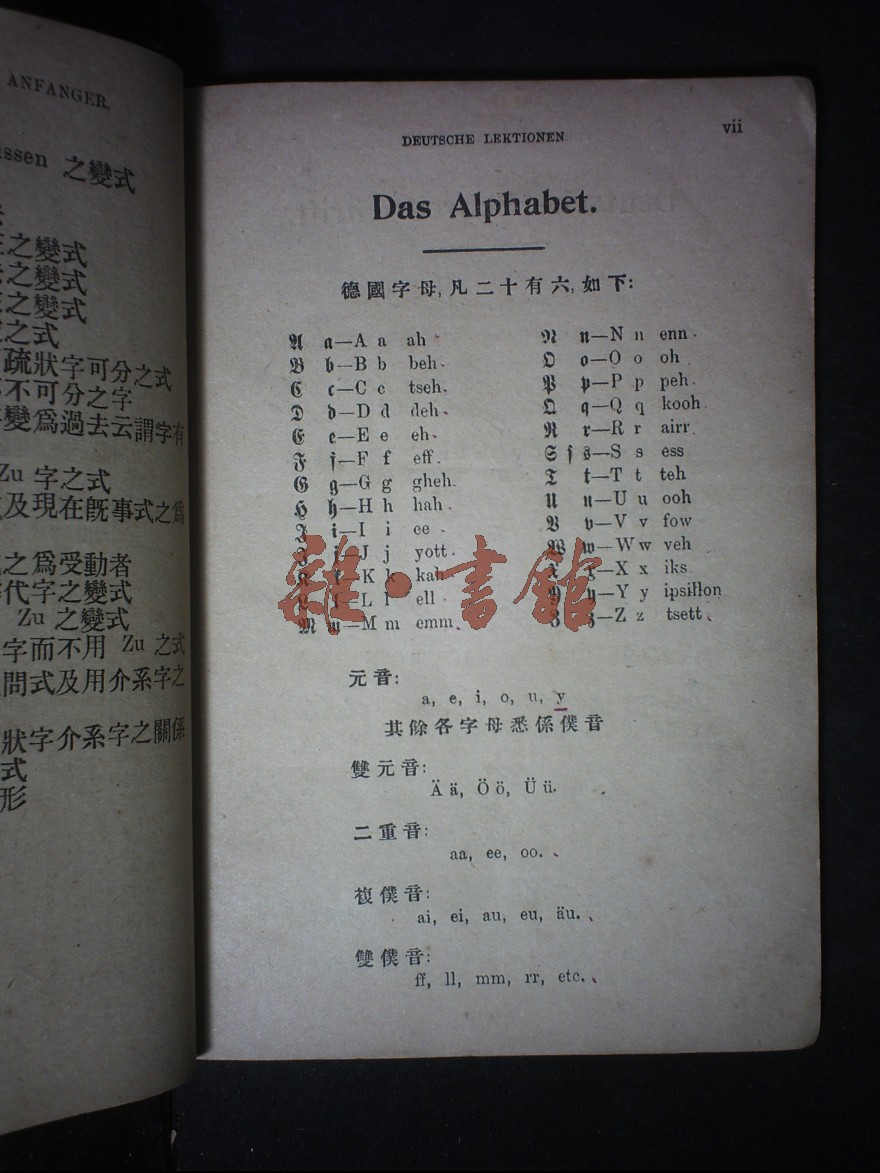 ANFANGER.
ssen 之變式
之變式
之變式
之變式
之式
疏狀字可分之式
不可分之字
變爲過去云謂字有
Zu 字之式
及現在旣事式之爲
之爲受動者
代字之變式
Zu 之變式
字而不用 Zu 之式
問式及用介系字之
狀字介系字之關係
式
形
DEUTSCHE LEKTIONEN
vii
Das Alphabet.
德國字母,凡二十有六,如下:
A a—A a ah
B b—B b beh.
C c—C c tseh.
D d—D d deh.
E e—E e eh.
F f—F f eff.
G g—G g gheh.
H h—H h hah.
I i—I i ee
J j—J j yott.
K k—K k kah
L l—L l ell
M m—M m emm.
N n—N n enn.
O o—O o oh
P p—P p peh.
Q q—Q q kooh.
R r—R r airr.
S ſ s—S s ess
T t—T t teh
U u—U u ooh
V v—V v fow
W w—W w veh
X x—X x iks
Y y—Y y ipsillon
Z z—Z z tsett.
雜·書館
元音:
a, e, i, o, u, y
其餘各字母悉係僕音
雙元音:
Ä ä, Ö ö, Ü ü.
二重音:
aa, ee, oo.
複僕音:
ai, ei, au, eu, äu.
雙僕音:
ff, ll, mm, rr, etc.